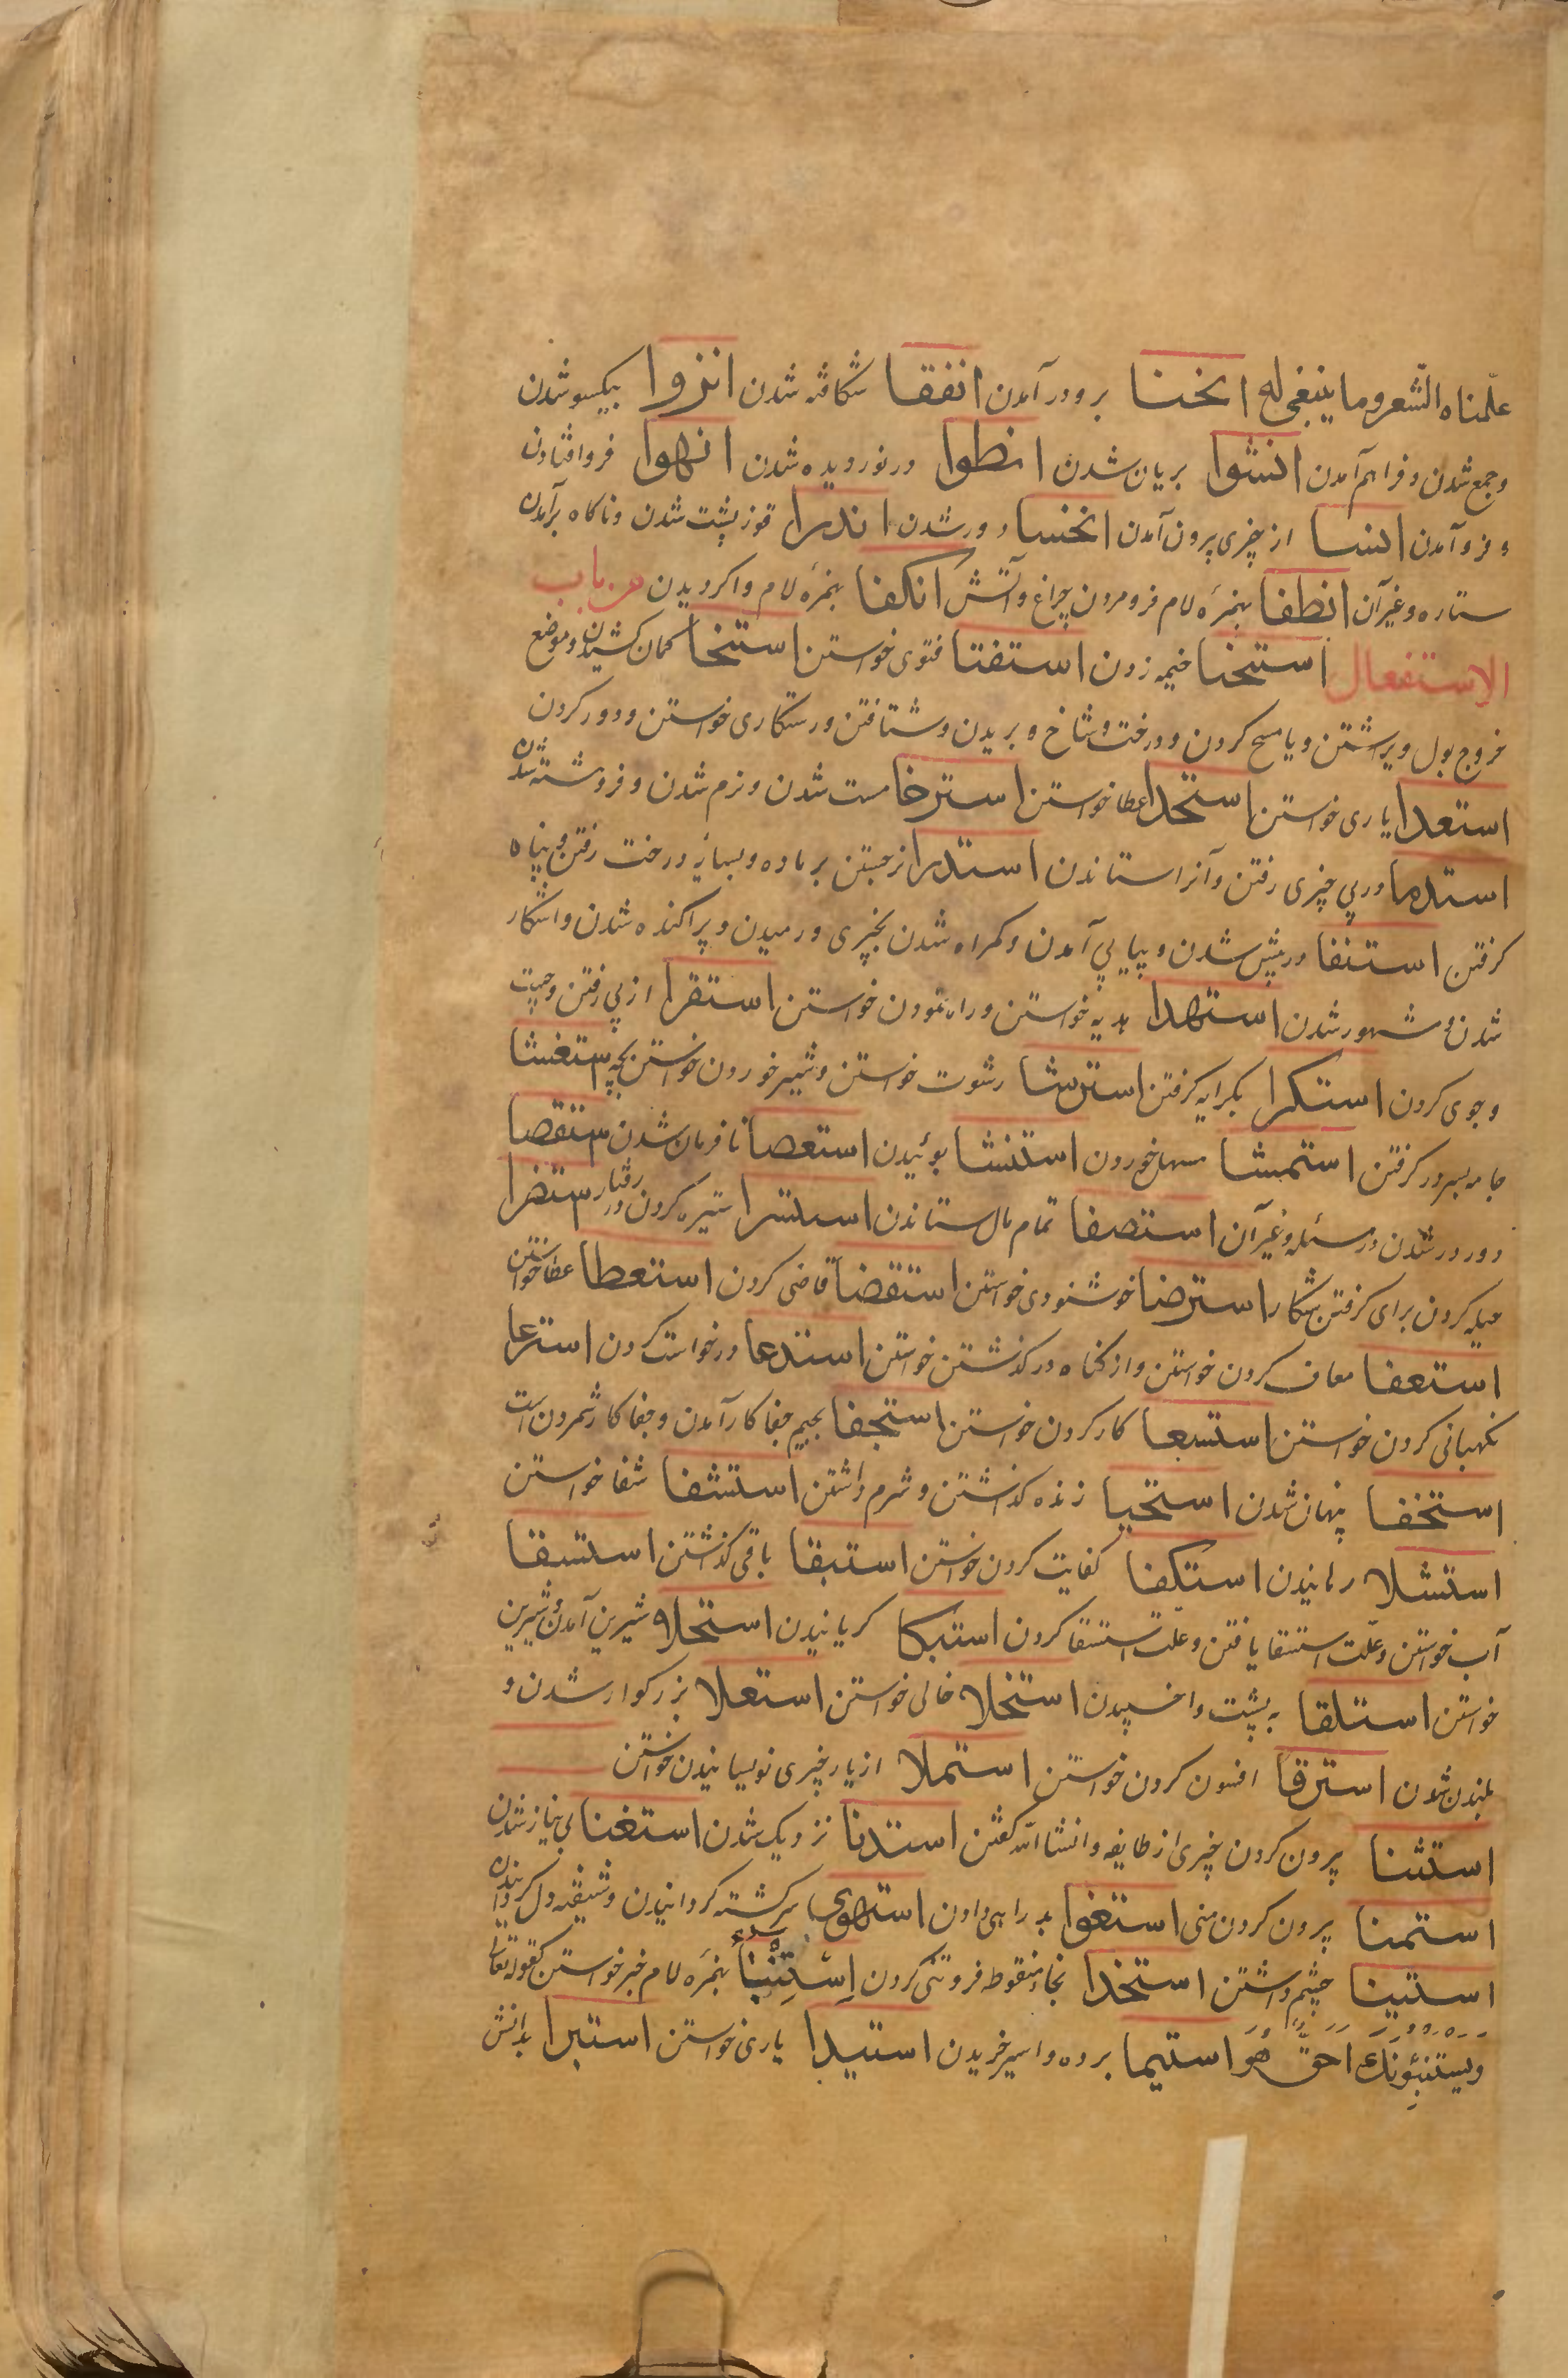 علّمناه الشّعر وما ینبغی له انحنا برو در آمدن انفقا شکافته شدن انزوا بیکسو شدن
و جمع شدن و فراهم آمدن انشوا بریان شدن انطوا در نوردیده شدن انهوا فرو افتادن
و فرو آمدن انسا از چیزی بیرون آمدن انخسا دور شدن اندرا قوز پشت شدن و ناکاه برآمدن
ستاره و غیر آن انطفا بهمزه لام فرو مردن چراغ و آتش انکفا بهمزه لام وا کردیدن من باب
الاستفعال استخنا خیمه زدن استفتا فتوی خواستن استنحا کمان کشیدن و موضع
خروج بول و یا مسح کردن و درخت و شاخ و بریدن و شتافتن و رستکاری خواستن و دور کردن
استعدا یاری خواستن استحدا عطا خواستن استرخا سست شدن و نرم شدن و فروهشته شدن
استدما در پی چیزی رفتن و آنرا استاندن استدرا نر جستن بر ماده و بسایه درخت رفتن و پناه
کرفتن استنفا در پیش شدن و پیاپی آمدن و کمراه شدن بچیزی و رمیدن و پراکنده شدن و اشکار
شدن و مشهور شدن استهدا هدیه خواستن و راه نمودن خواستن استقرا از پی رفتن و جست
و جوی کردن استکرا بکرایه کرفتن استرشا رشوت خواستن و شیر خوردن خواستن بچه استغشا
جامه بسر در کرفتن استمشا مسهل خوردن استنشا بوئیدن استعصا نافرمان شدن استقصا
دور در شدن در مسئله و غیر آن استصفا تمام مال ستاندن استسرا ستیزه کردن در رفتار استضرا
حیله کردن برای کرفتن شکار استرضا خوشنودی خواستن استقضا قاضی کردن استعطا عطا خواستن
استعفا معاف کردن خواستن و از کناه در کذشتن خواستن استدعا درخواست کردن استرعا
نکهبانی کردن خواستن استسعا کار کردن خواستن استجفا بجیم جفا کار آمدن و جفا کار شمردن است
استخفا پنهان شدن استحیا زنده کذاشتن و شرم داشتن استشفا شفا خواستن
استشلا رهانیدن استکفا کفایت کردن خواستن استبقا باقی کذاشتن استسقا
آب خواستن و علّت استسقا یافتن و علّت استسقا کردن استبکا کریانیدن استحلا شیرین آمدن و شیرین
خواستن استلقا به پشت وا خسپیدن استخلا خالی خواستن استعلا بزرکوار شدن و
بلند شدن استرقا افسون کردن خواستن استملا از یار چیزی نویسانیدن خواستن
استثنا بیرون کردن چیزی از طایفه و انشا الله کفتن استدنا نزدیک شدن استغنا بی نیاز شدن
استمنا بیرون کردن منی استغوا بد راهی دادن استهوی سرکشته کردانیدن و شیفته دل کردانیدن
استینا چشم داشتن استخذا بخاء منقوطه فروتنی کردن اِسْتِنْبَاء بهمزه لام خبر خواستن کقوله تعالی
ویستنبئونک احقّ هو استیما برده و اسیر خریدن استیدا یاری خواستن استبرا بدانش